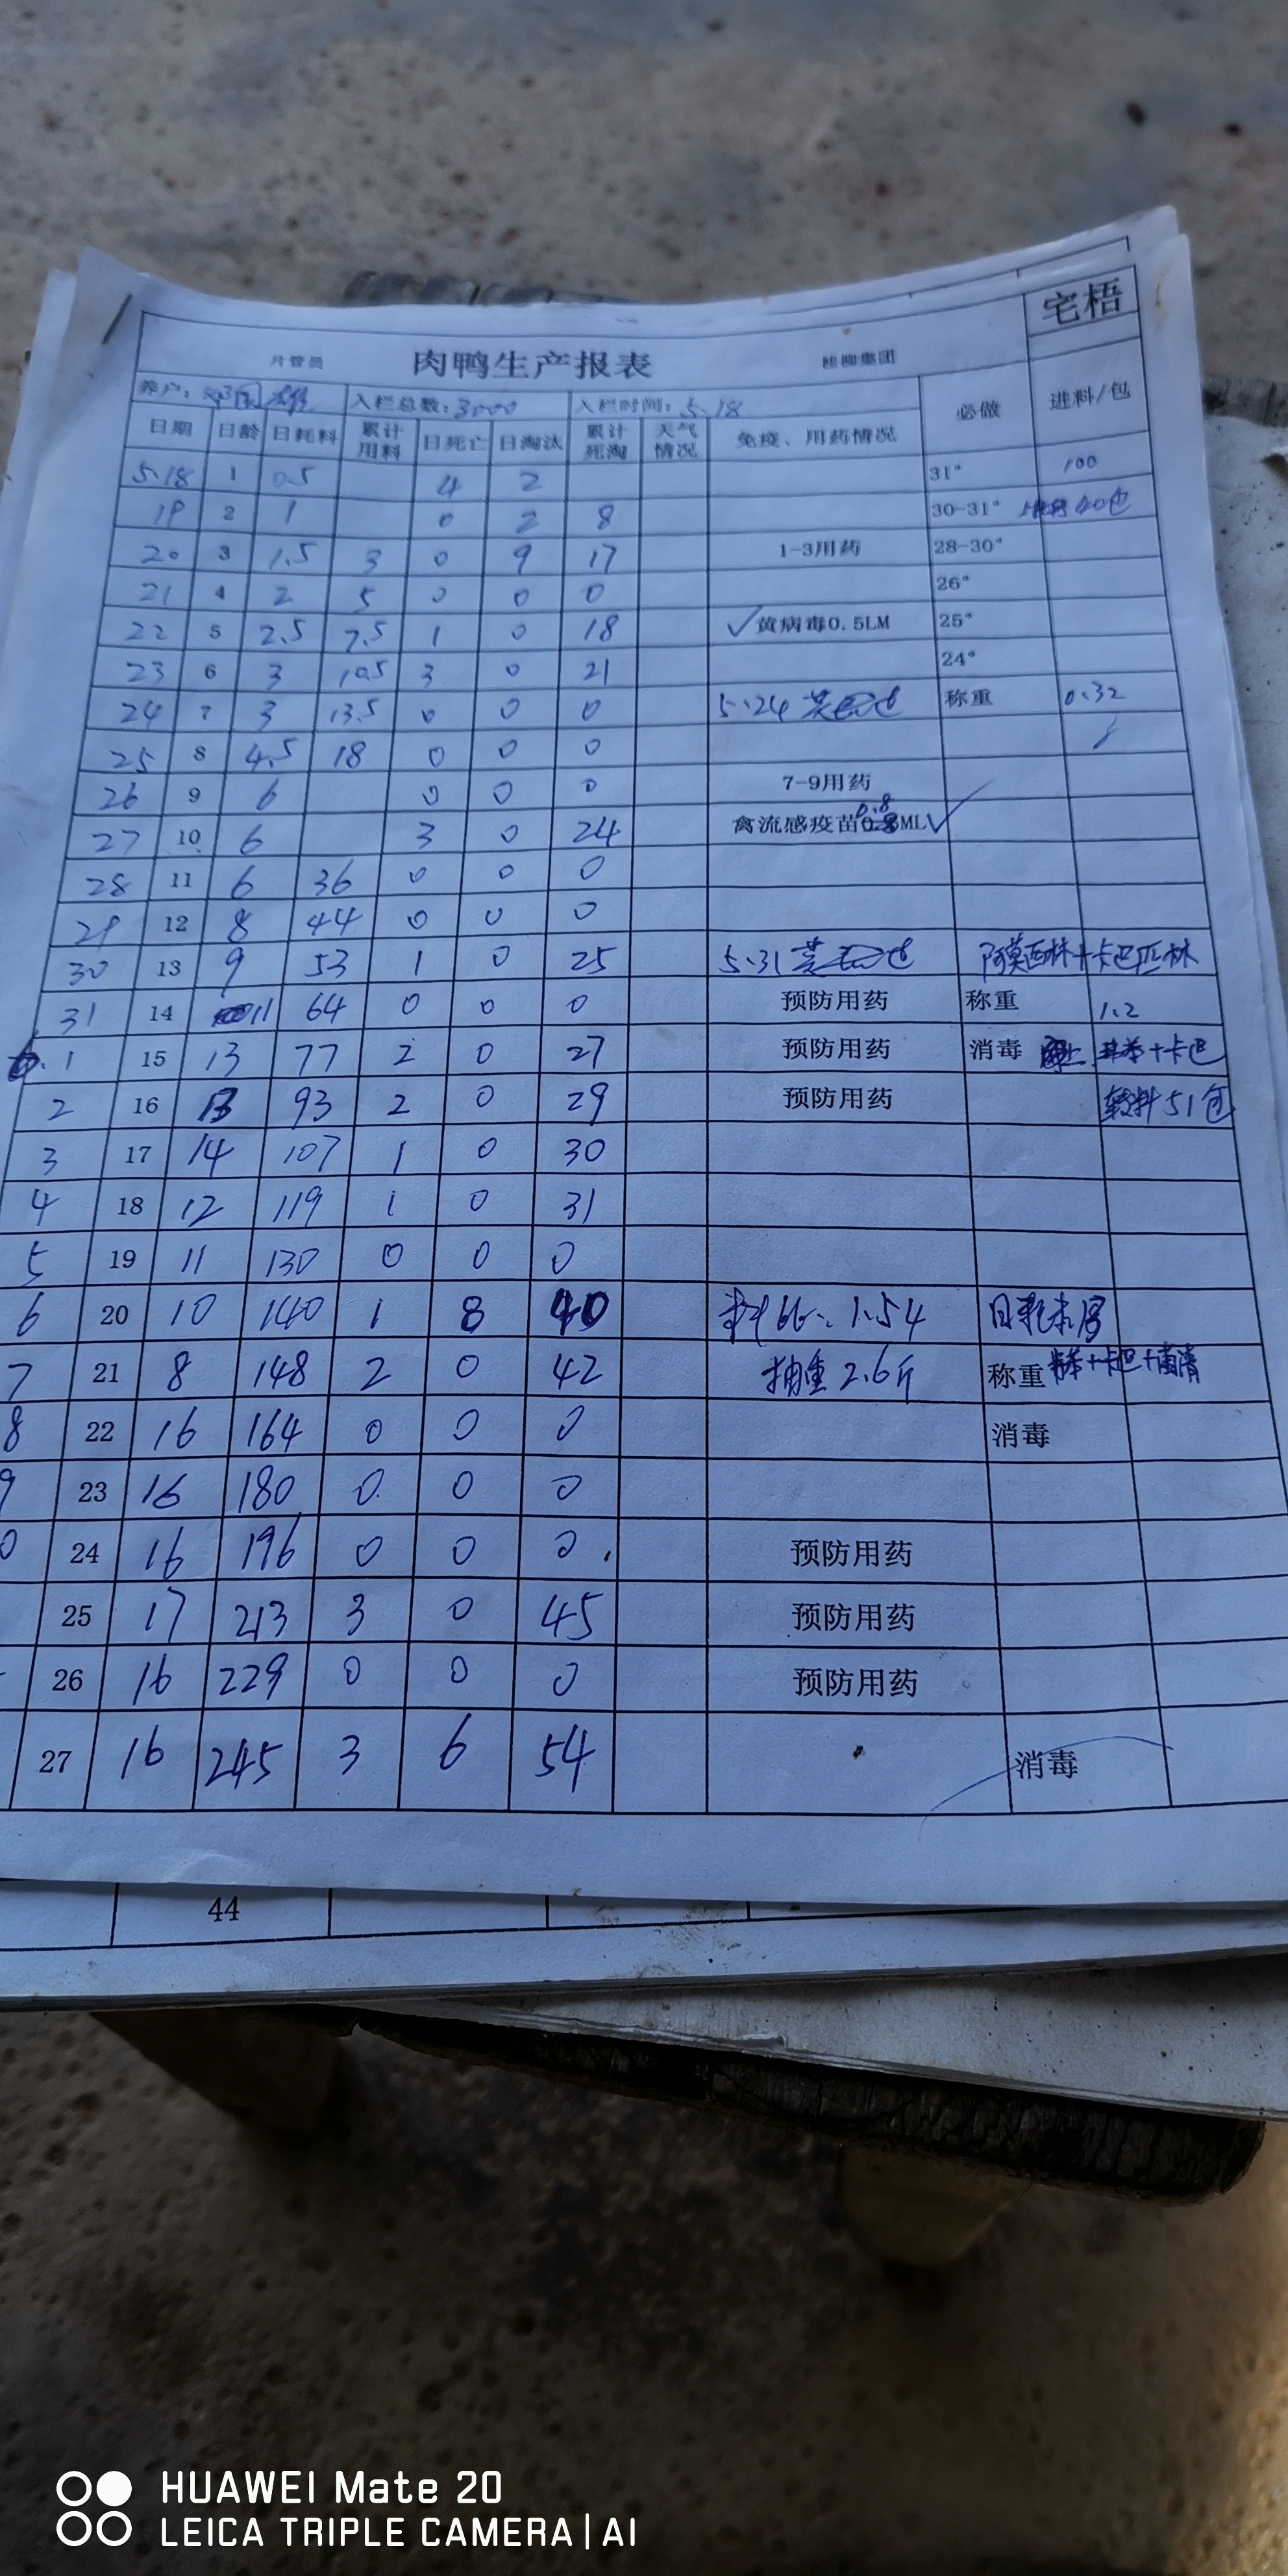 宅梧
月管员 肉鸭生产报表 桂柳集团
养户： 入栏总数：3000 入栏时间：5.18 必做 进料/包
日期 日龄 日耗料 累计用料 日死亡 日淘汰 累计死淘 天气情况 免疫、用药情况
5.18 1 0.5 4 2 31° 100
19 2 1 0 2 8 30-31° 40包
20 3 1.5 3 0 9 17 1-3用药 28-30°
21 4 2 5 0 0 0 26°
22 5 2.5 7.5 1 0 18 ✓黄病毒0.5LM 25°
23 6 3 10.5 3 0 21 24°
24 7 3 13.5 0 0 0 5.24 称重 0.32
25 8 4.5 18 0 0 0
26 9 6 0 0 0 7-9用药
27 10 6 3 0 24 禽流感疫苗0.8ML✓
28 11 6 36 0 0 0
29 12 8 44 0 0 0
30 13 9 53 1 0 25 5.31 阿莫西林+卡巴匹林
31 14 11 64 0 0 0 预防用药 称重 1.2
6.1 15 13 77 2 0 27 预防用药 消毒 +卡巴
2 16 93 2 0 29 预防用药 料51包
3 17 14 107 1 0 30
4 18 12 119 1 0 31
5 19 11 130 0 0 0
6 20 10 140 1 8 40 料比：1.54
7 21 8 148 2 0 42 抽重2.6斤 称重 +卡巴+
8 22 16 164 0 0 0 消毒
9 23 16 180 0 0 0
0 24 16 196 0 0 0 预防用药
25 17 213 3 0 45 预防用药
26 16 229 0 0 0 预防用药
27 16 245 3 6 54 消毒
44
HUAWEI Mate 20
LEICA TRIPLE CAMERA | AI